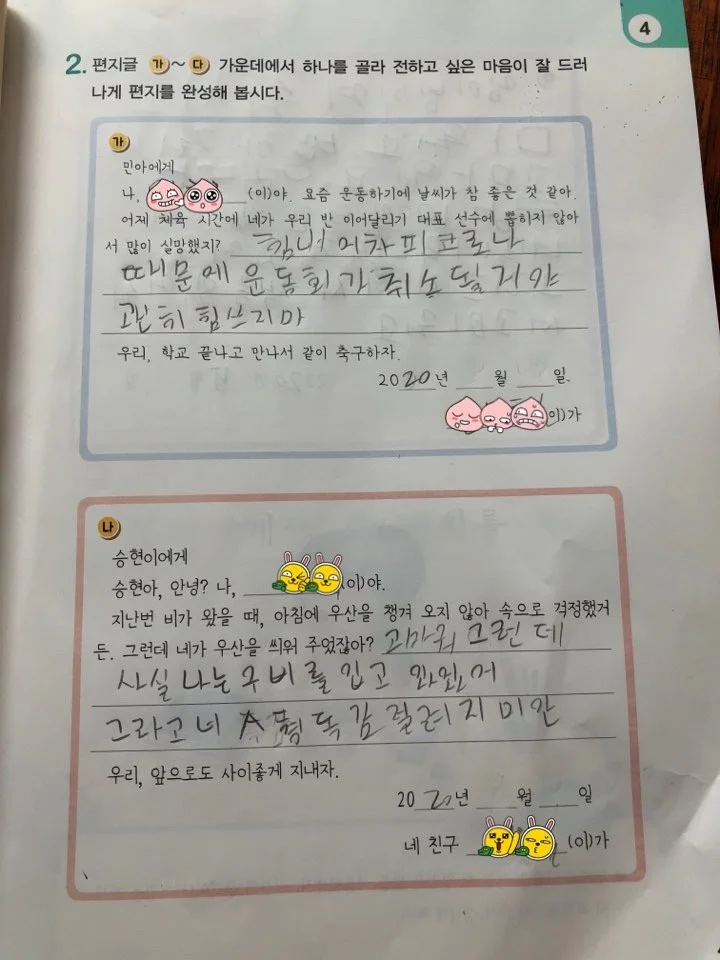 4
2. 편지글 가 ~ 다 가운데에서 하나를 골라 전하고 싶은 마음이 잘 드러
나게 편지를 완성해 봅시다.
가
민아에게
나, (이)야. 요즘 운동하기에 날씨가 참 좋은 것 같아.
어제 체육 시간에 네가 우리 반 이어달리기 대표 선수에 뽑히지 않아
서 많이 실망했지? 힘내 어차피 코로나
때문에 운동회가 취소 될거야
괜히 힘쓰지마
우리, 학교 끝나고 만나서 같이 축구하자.
2020년 월 일
(이)가
나
승현이에게
승현아, 안녕? 나, (이)야.
지난번 비가 왔을 때, 아침에 우산을 챙겨 오지 않아 속으로 걱정했거
든. 그런데 네가 우산을 씌워 주었잖아? 고마워 그런데
사실 나는 우비를 입고 와있어
그라고 너 독감 걸려지 미안
우리, 앞으로도 사이좋게 지내자.
2020년 월 일
네 친구 (이)가